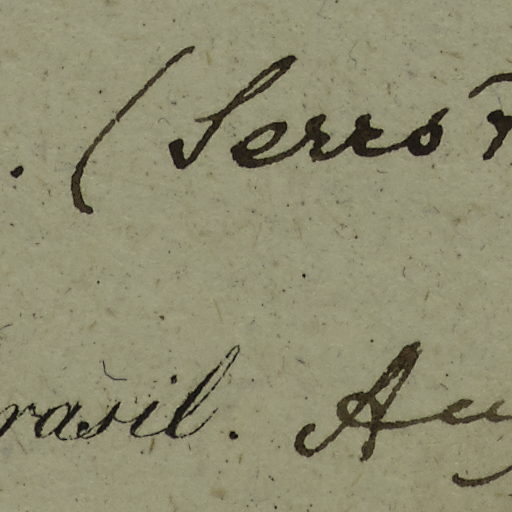 . (Serro
rasil. Aug